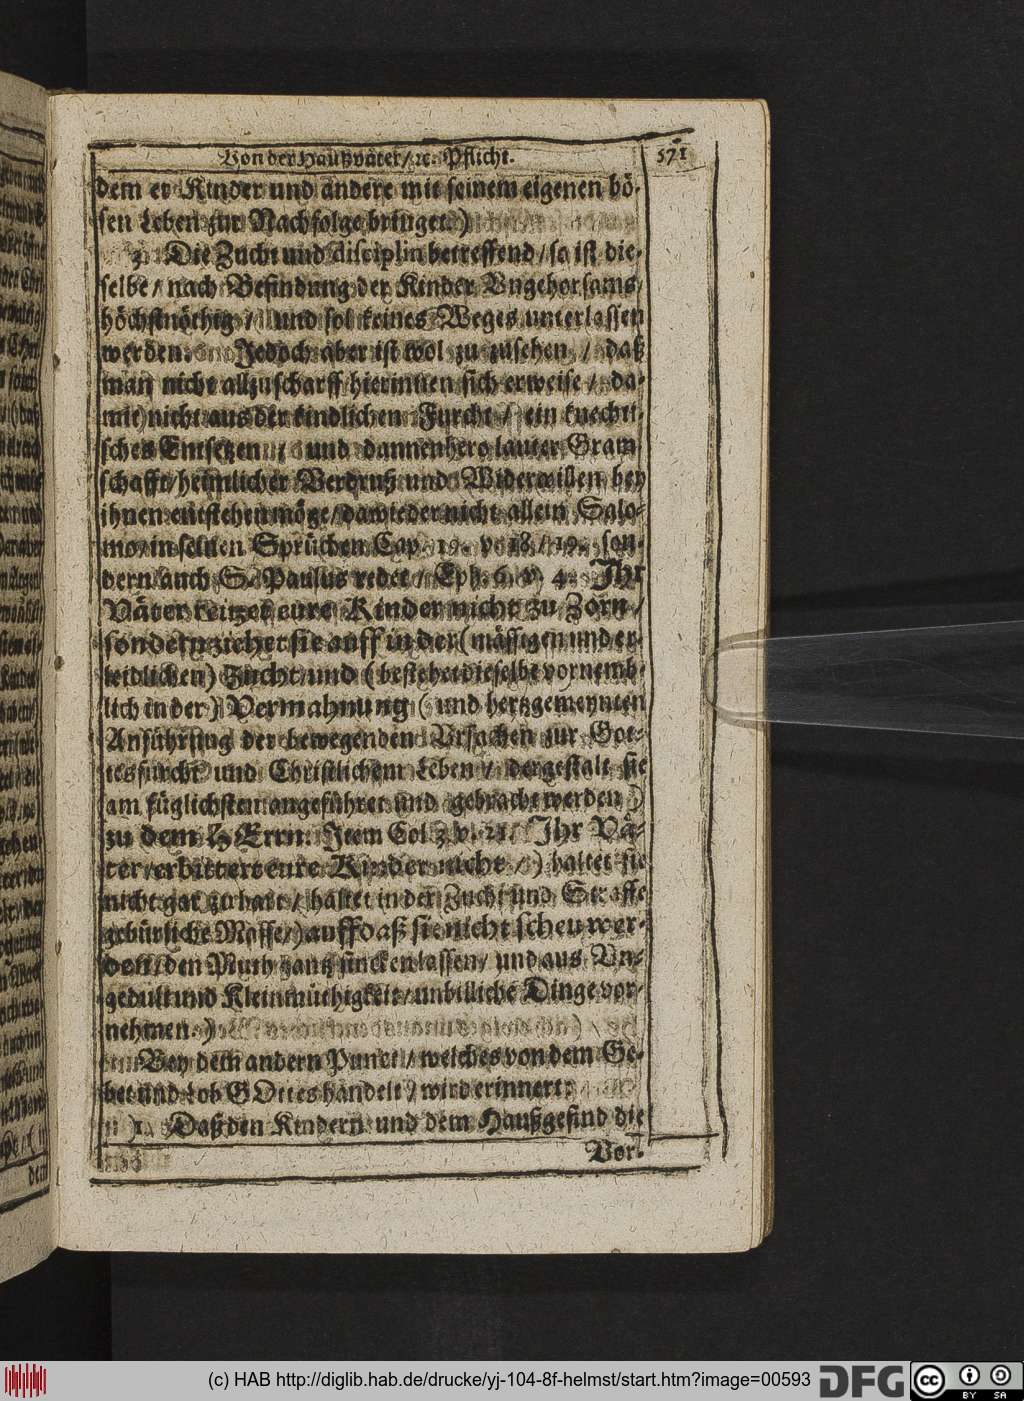 Von der Haußväter/ ꝛc. Pflicht. 571
dem er Kinder und andere mit seinem eigenen bö-
sen Leben zur Nachfolge bringet.)
3. Die Zucht und disciplin betreffend/ so ist die-
selbe/ nach Befindung der Kinder Ungehorsams/
höchstnöthig/ und sol keines Weges unterlassen
werden. Jedoch aber ist wol zu zusehen/ daß
man nicht allzuscharff hierinnen sich erweise/ da-
mit nicht aus der kindlichen Furcht/ ein knechti-
sches Entsetzen/ und dannenhero lauter Gram-
schafft/ heimlicher Verdruß und Widerwillen bey
ihnen entstehen möge/ dawieder nicht allein Salo-
mo/ in seinen Sprüchen Cap. 19. v. 18/ 19. son-
dern auch S. Paulus redet/ Eph. 6. v. 4. Ihr
Väter reitzet eure Kinder nicht zu Zorn/
sondern ziehet sie auff in der (mässigen und er-
leidlichen) Zucht/ und (bestehet dieselbe vornemb-
lich in der) Vermahnung (und hertzgemeynten
Anführung der bewegenden Ursachen zur Got-
tesfurcht und Christlichem Leben/ dergestalt sie
am füglichsten angeführet und gebracht werden)
zu dem HErrn. Item Col. 3. v. 21. Ihr Vä-
ter/ erbittert eure Kinder nicht/) haltet sie
nicht gar zu hart/ haltet in der Zucht und Straffe
gebürliche Masse/) auff daß sie nicht scheu wer-
den/ den Muth gantz sincken lassen/ und aus Un-
gedult und Kleinmüthigkeit/ unbilliche Dinge vor-
nehmen.)
Bey dem andern Punct/ welches von dem Ge-
bet und Lob GOttes handelt/ wird erinnert:
1. Daß den Kindern und dem Haußgesind die
Vor-
dem
(c) HAB http://diglib.hab.de/drucke/yj-104-8f-helmst/start.htm?image=00593
DFG
cc
BY SA